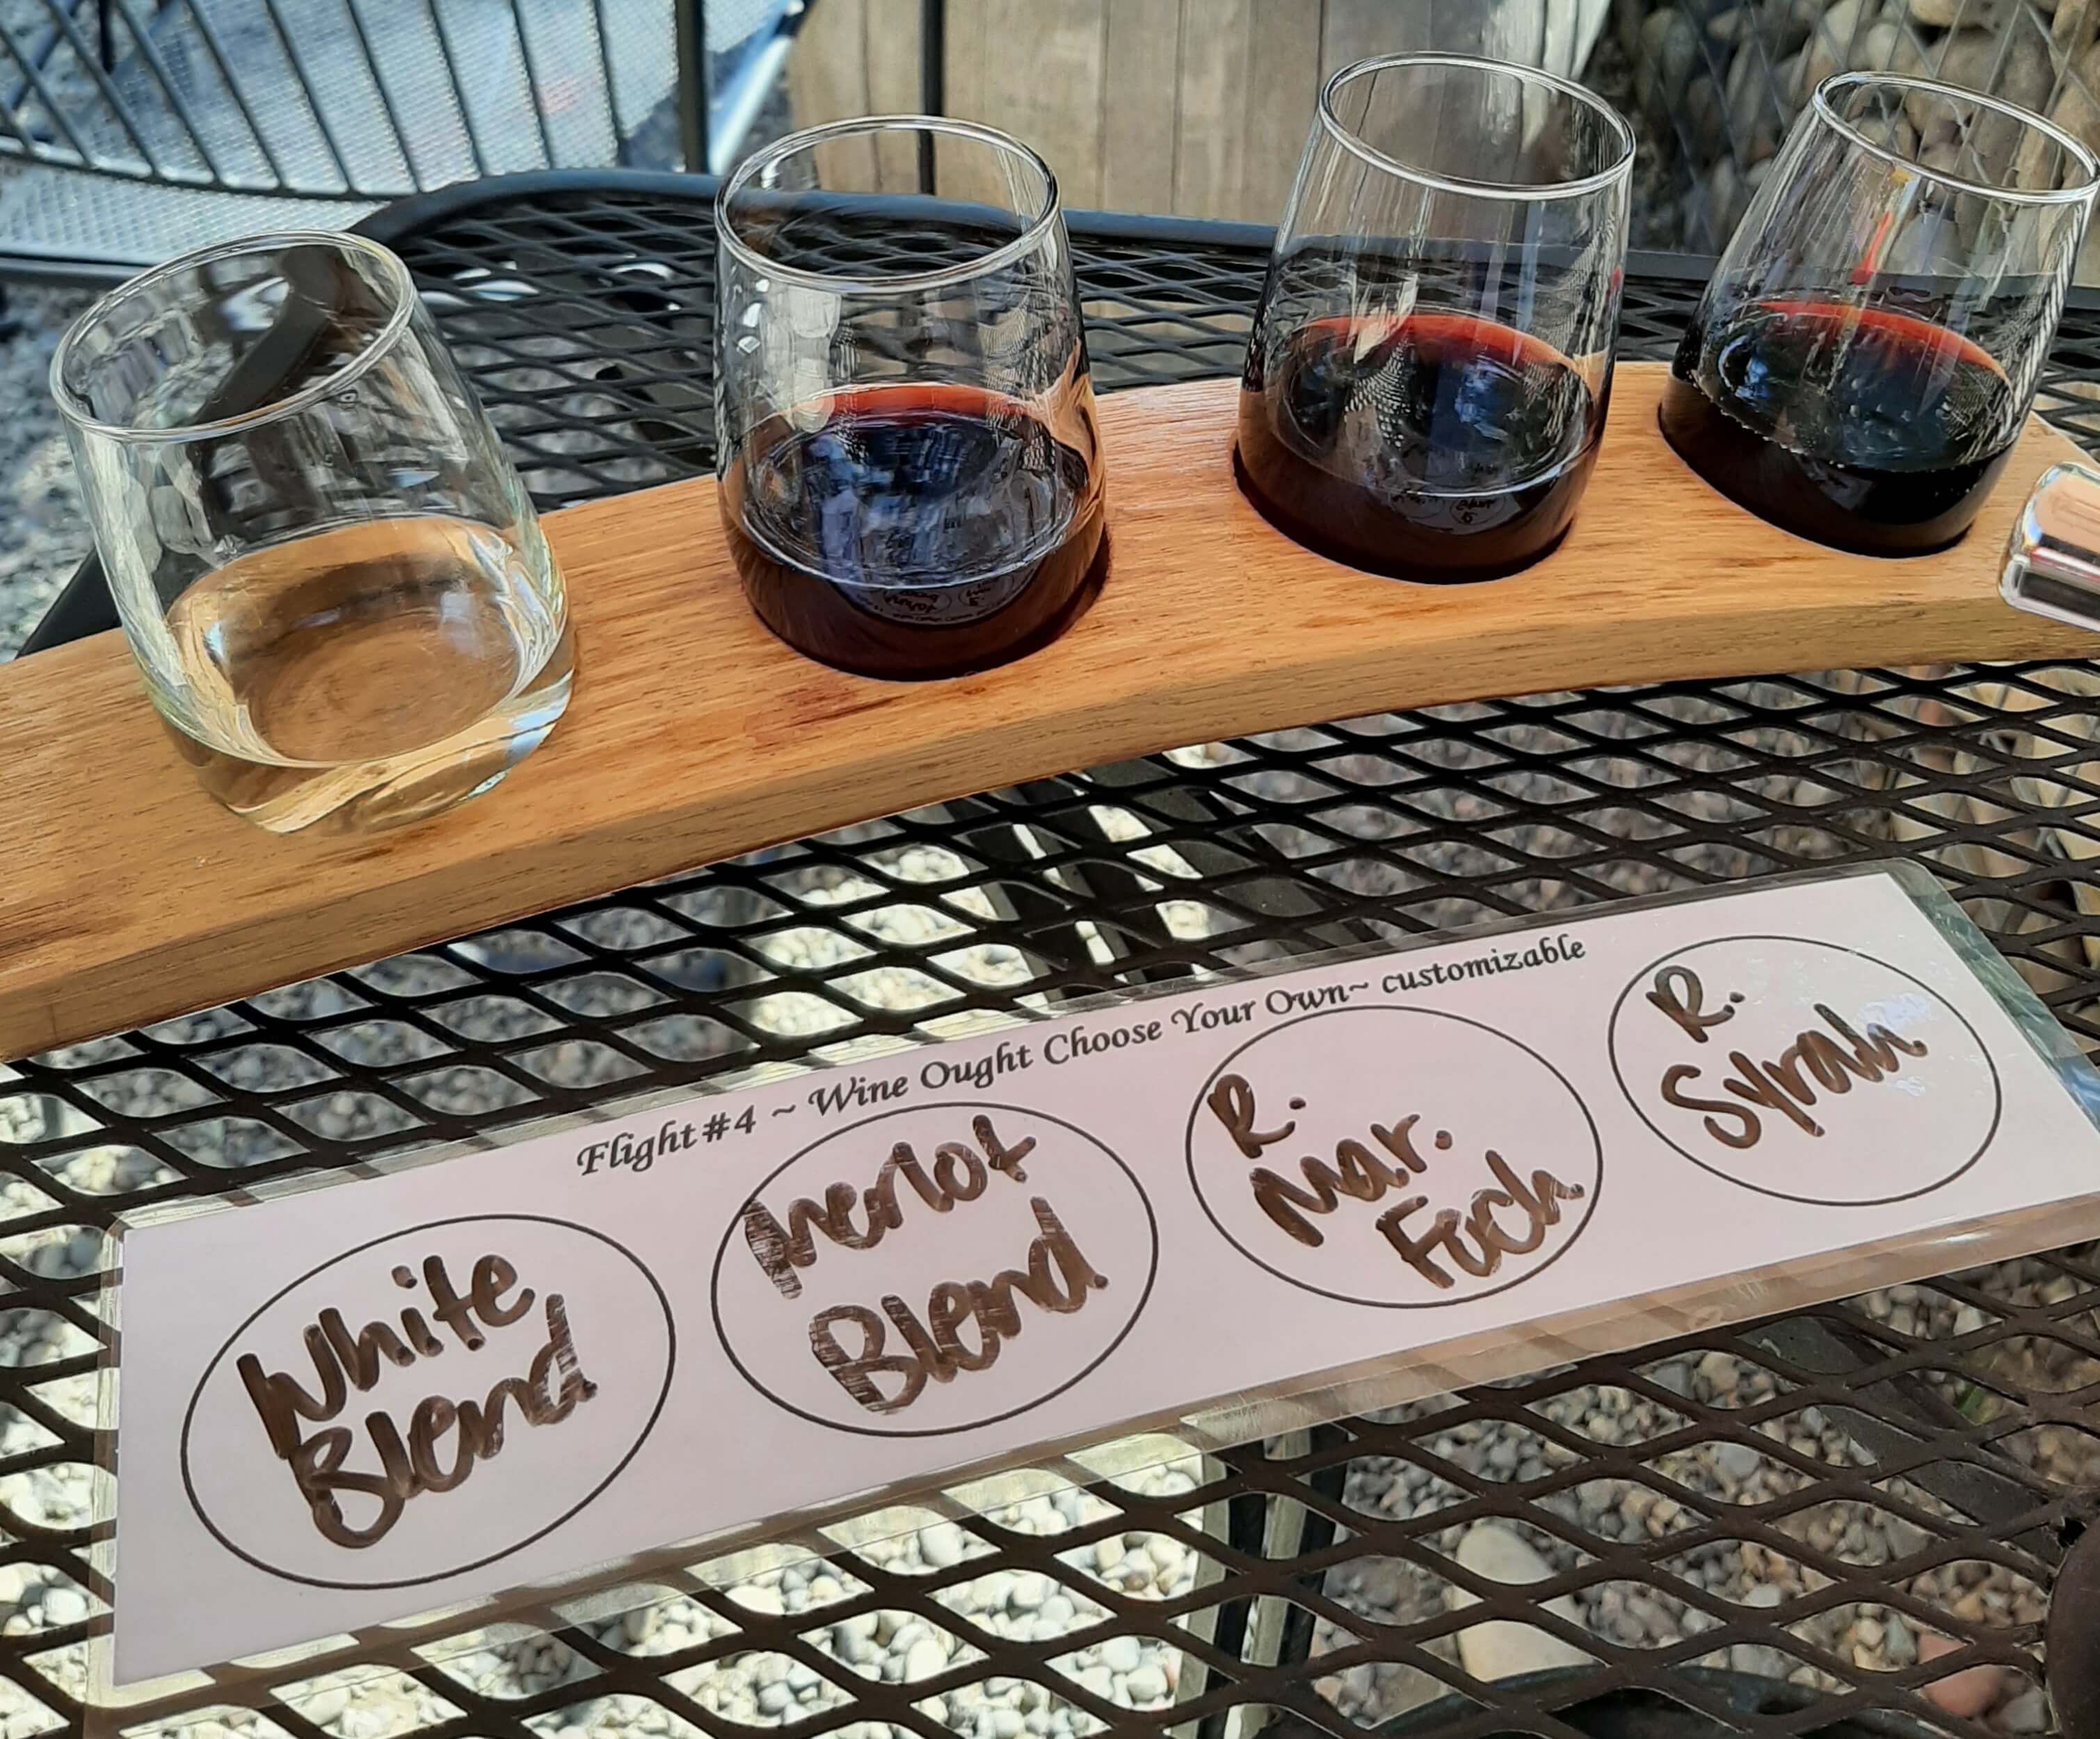 Flight #4 ~ Wine Ought Choose Your Own~ customizable
White
Blend
Merlot
Blend
R.
Mar.
Foch
R.
Syrah